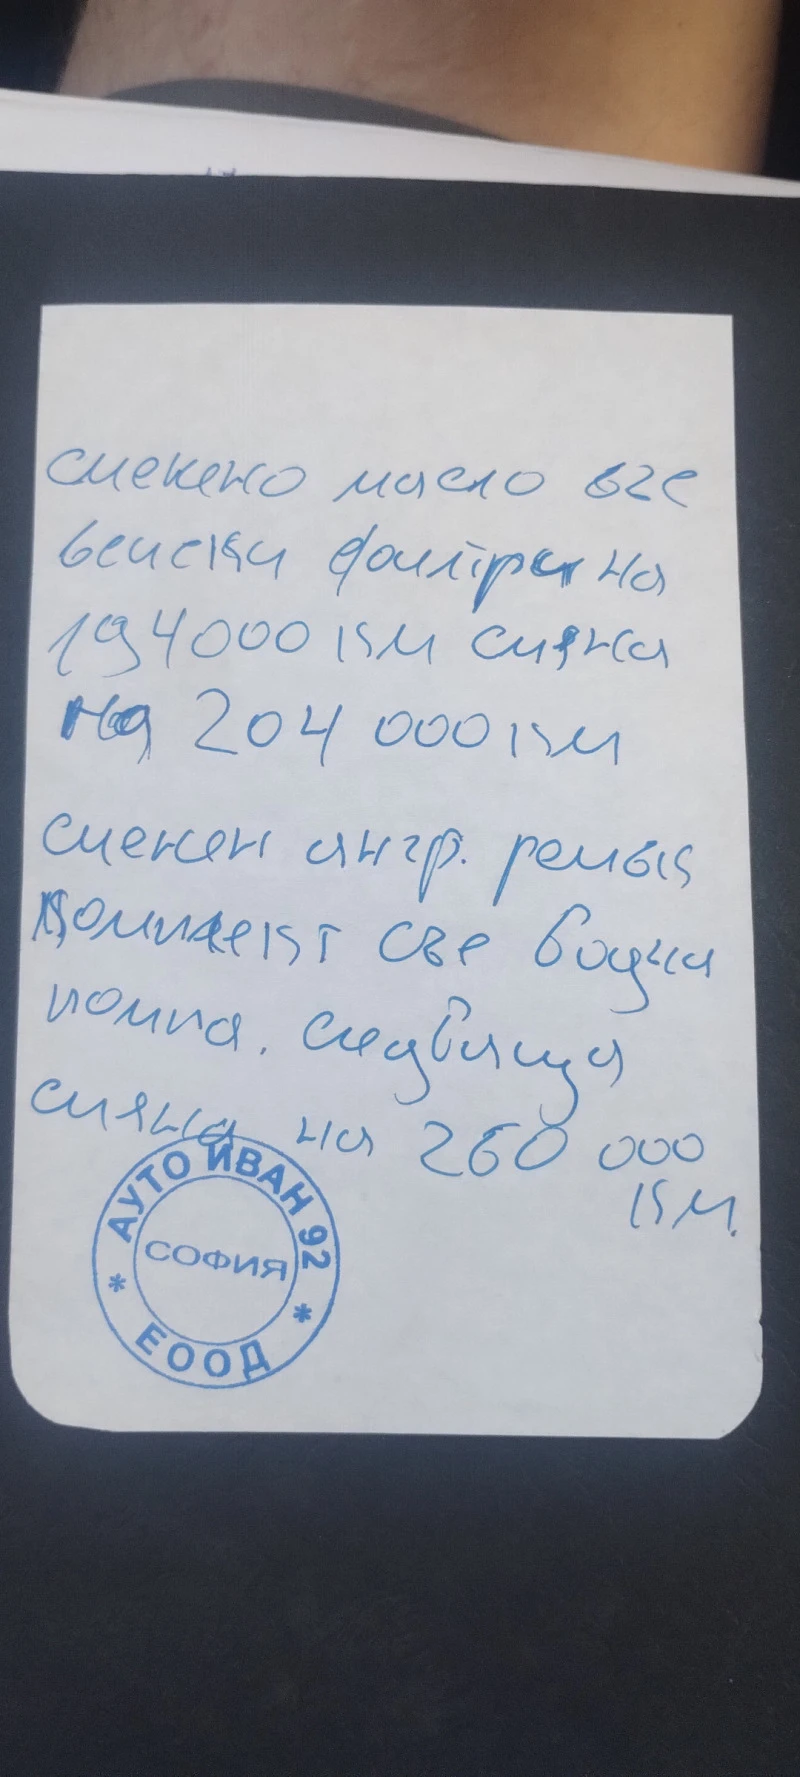 сменено масло със
всички филтри на
194000 км смяна
на 204 000 км
сменен ангр. ремък
комплект със водна
помпа. следваща
смяна на 260 000
км.
АУТО ИВАН 92
СОФИЯ
* ЕООД *